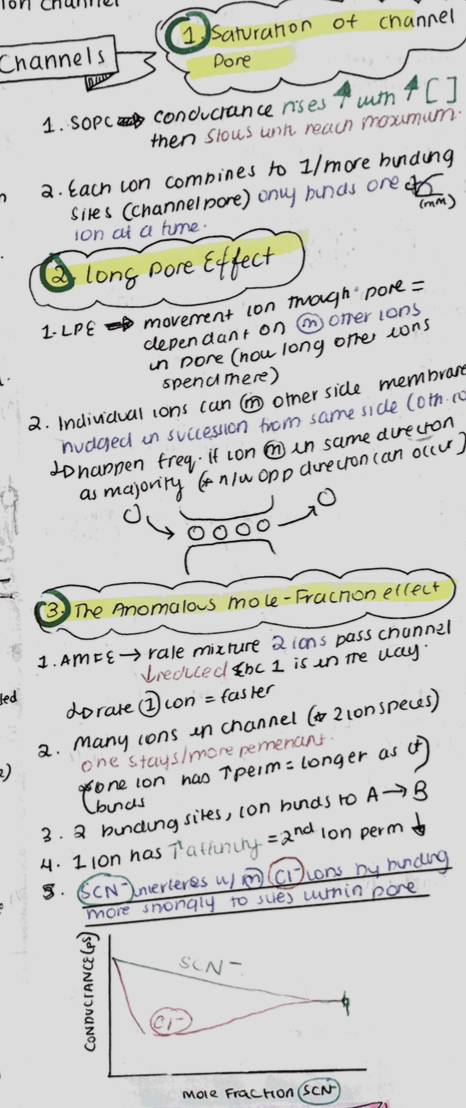 Ion Channel
Channels
1. Saturation of channel
Pore
1. SOPC ⇒ conductance rises ↑ with ↑ [ ]
then slows until reach maximum.
2. Each ion combines to 1/more binding
sites (channel pore) only binds one
ion at a time.
(mM)
2. Long Pore Effect
1. LPE ⇒ movement ion through pore =
dependant on (m) other ions
in pore (how long other ions
spend there)
2. Individual ions can (m) other side membrane
nudged in succession from same side (oth.
↳ happen freq. if ion (m) in same direction
as majority (* n/w opp direction can occur)
3. The Anomalous Mole-Fraction effect
1. AMFE → rate mixture 2 ions pass channel
↓ reduced bc 1 is in the way.
↳ rate (1) ion = faster
2. Many ions in channel (* 2 ion species)
one stays/more permenant.
* one ion has ↑ perm = longer as it
binds
3. 2 binding sites, ion binds to A → B
4. 1 ion has ↑ affinity = 2nd ion perm ↓
5. SCN⁻ interferes w/ (m) Cl⁻ ions by binding
more strongly to sites within pore
CONDUCTANCE (pS)
SCN⁻
Cl⁻
Mole Fraction SCN⁻